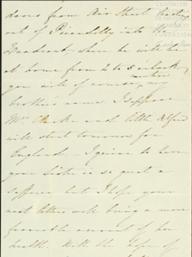 doors from Air Street leading
out of Piccadilly into the
Quadrant where he will be
at home from 2 to 5 o'clock,
you will of course, mention my
brother's name. I suppose
Mr. and little Alfred
will start tomorrow for
England. I grieve to hear
your Sister is so great a
sufferer but I hope your
next letters will bring a more
favorable account of her
health. With the hope of